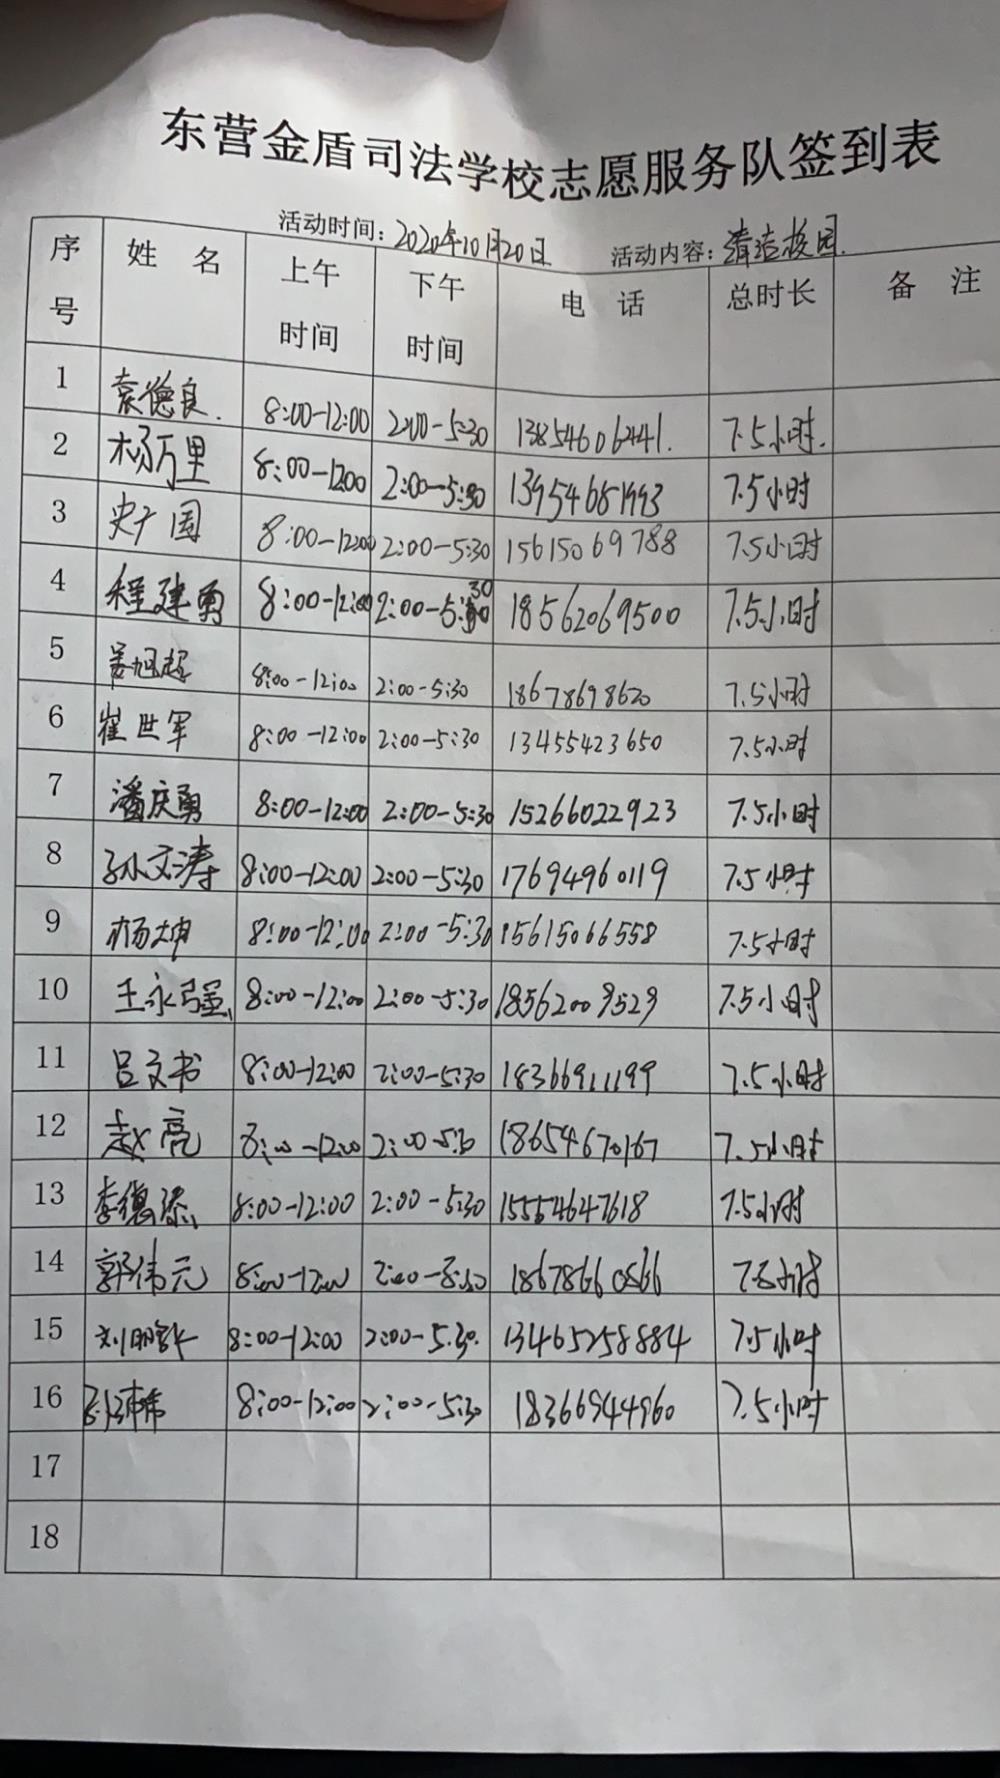 东营金盾司法学校志愿服务队签到表
活动时间：2020年10月20日 活动内容：清洁校园.
序号 姓 名 上午时间 下午时间 电 话 总时长 备 注
1 袁德良. 8:00-12:00 2:00-5:30 13854606441. 7.5小时.
2 杨万里 8:00-12:00 2:00-5:30 13954681993 7.5小时
3 史广国 8:00-12:00 2:00-5:30 15615069788 7.5小时
4 程建勇 8:00-12:00 2:00-5:30 18562069500 7.5小时
5 姜旭超 8:00-12:00 2:00-5:30 18678698620 7.5小时
6 崔世军 8:00-12:00 2:00-5:30 13455423650 7.5小时
7 潘庆勇 8:00-12:00 2:00-5:30 15266022923 7.5小时
8 孙文涛 8:00-12:00 2:00-5:30 17694960119 7.5小时
9 杨坤 8:00-12:00 2:00-5:30 15615066558 7.5小时
10 王永强 8:00-12:00 2:00-5:30 18562009529 7.5小时
11 吕文书 8:00-12:00 2:00-5:30 18366911199 7.5小时
12 赵亮 8:00-12:00 2:00-5:30 18654670167 7.5小时
13 李德添 8:00-12:00 2:00-5:30 15554647618 7.5小时
14 郭伟元 8:00-12:00 2:00-5:30 18678660566 7.5小时
15 8:00-12:00 2:00-5.30. 13465258884 7.5小时
16 8:00-12:00 2:00-5:30 18366944960 7.5小时
17
18